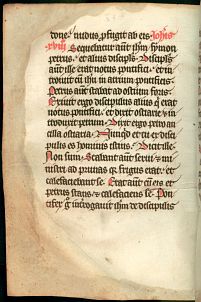 done nudus profugit ab eis Johis
xviij Sequebatur aut ihm symon
petrus et alius discipls Discipls
aut ille erat notus pontifici et in
troiuit cu ihu in atrium pontificis
Petrus aut stabat ad ostium foris
Exiuit ergo discipulus alius q erat
notus pontifici et dixit ostiarie et in
troduxit petrum Dixit ergo petro an
cilla ostiaria Nunqd et tu ex disci
pulis es hominis istius Dicit ille
Non sum Stabant aut serui et mi
nistri ad prunas qr frigus erat et
calefaciebant se Erat aut cu eis et
petrus stans et calefaciens se Pon
tifex g interrogauit ihm de discipulis